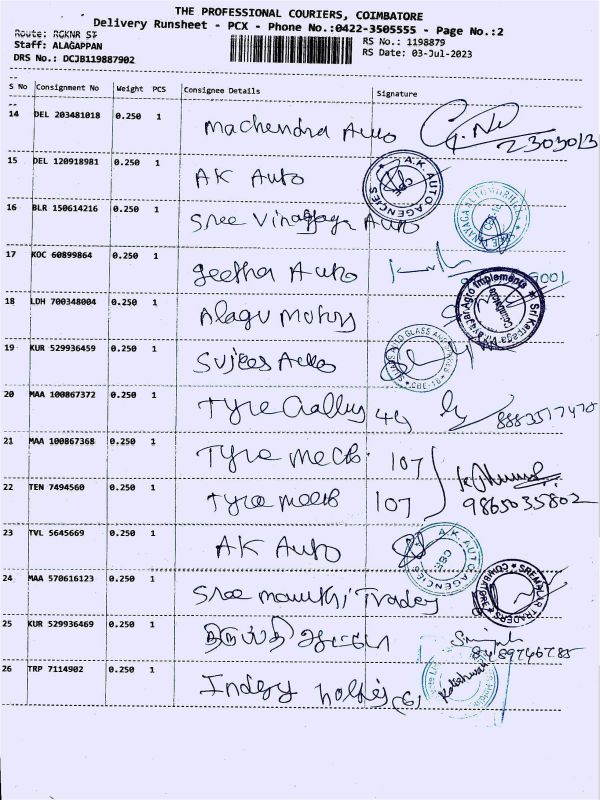 THE PROFESSIONAL COURIERS, COIMBATORE
Delivery Runsheet - PCX - Phone No.:0422-3505555 - Page No.:2
Route: RGKNR ST
Staff: ALAGAPPAN
DRS No.: DCJB119887902
RS No.: 1198879
RS Date: 03-Jul-2023
S No Consignment No Weight PCS Consignee Details Signature
14 DEL 203481018 0.250 1 Machendra Auto
15 DEL 120918981 0.250 1 AK Auto A.K. AUTO AGENCIES CBE
16 BLR 150614216 0.250 1 Sree Vinayaga Auto
17 KOC 60899864 0.250 1 Geetha Auto
18 LDH 700348004 0.250 1 Alagu Motors Sri Karpaga Vinayagar Agro Implements Coimbatore
19 KUR 529936459 0.250 1 Sujees Auto
20 MAA 100867372 0.250 1 Tyre Gallery
21 MAA 100867368 0.250 1 Tyre mech 107
22 TEN 7494560 0.250 1 Tyre mech 107 9865035802
23 TVL 5645669 0.250 1 AK Auto A.K. AUTO AGENCIES CBE
24 MAA 570616123 0.250 1 Sree Traders TRADERS COIMBATORE
25 KUR 529936469 0.250 1 திருப்பதி
26 TRP 7114902 0.250 1